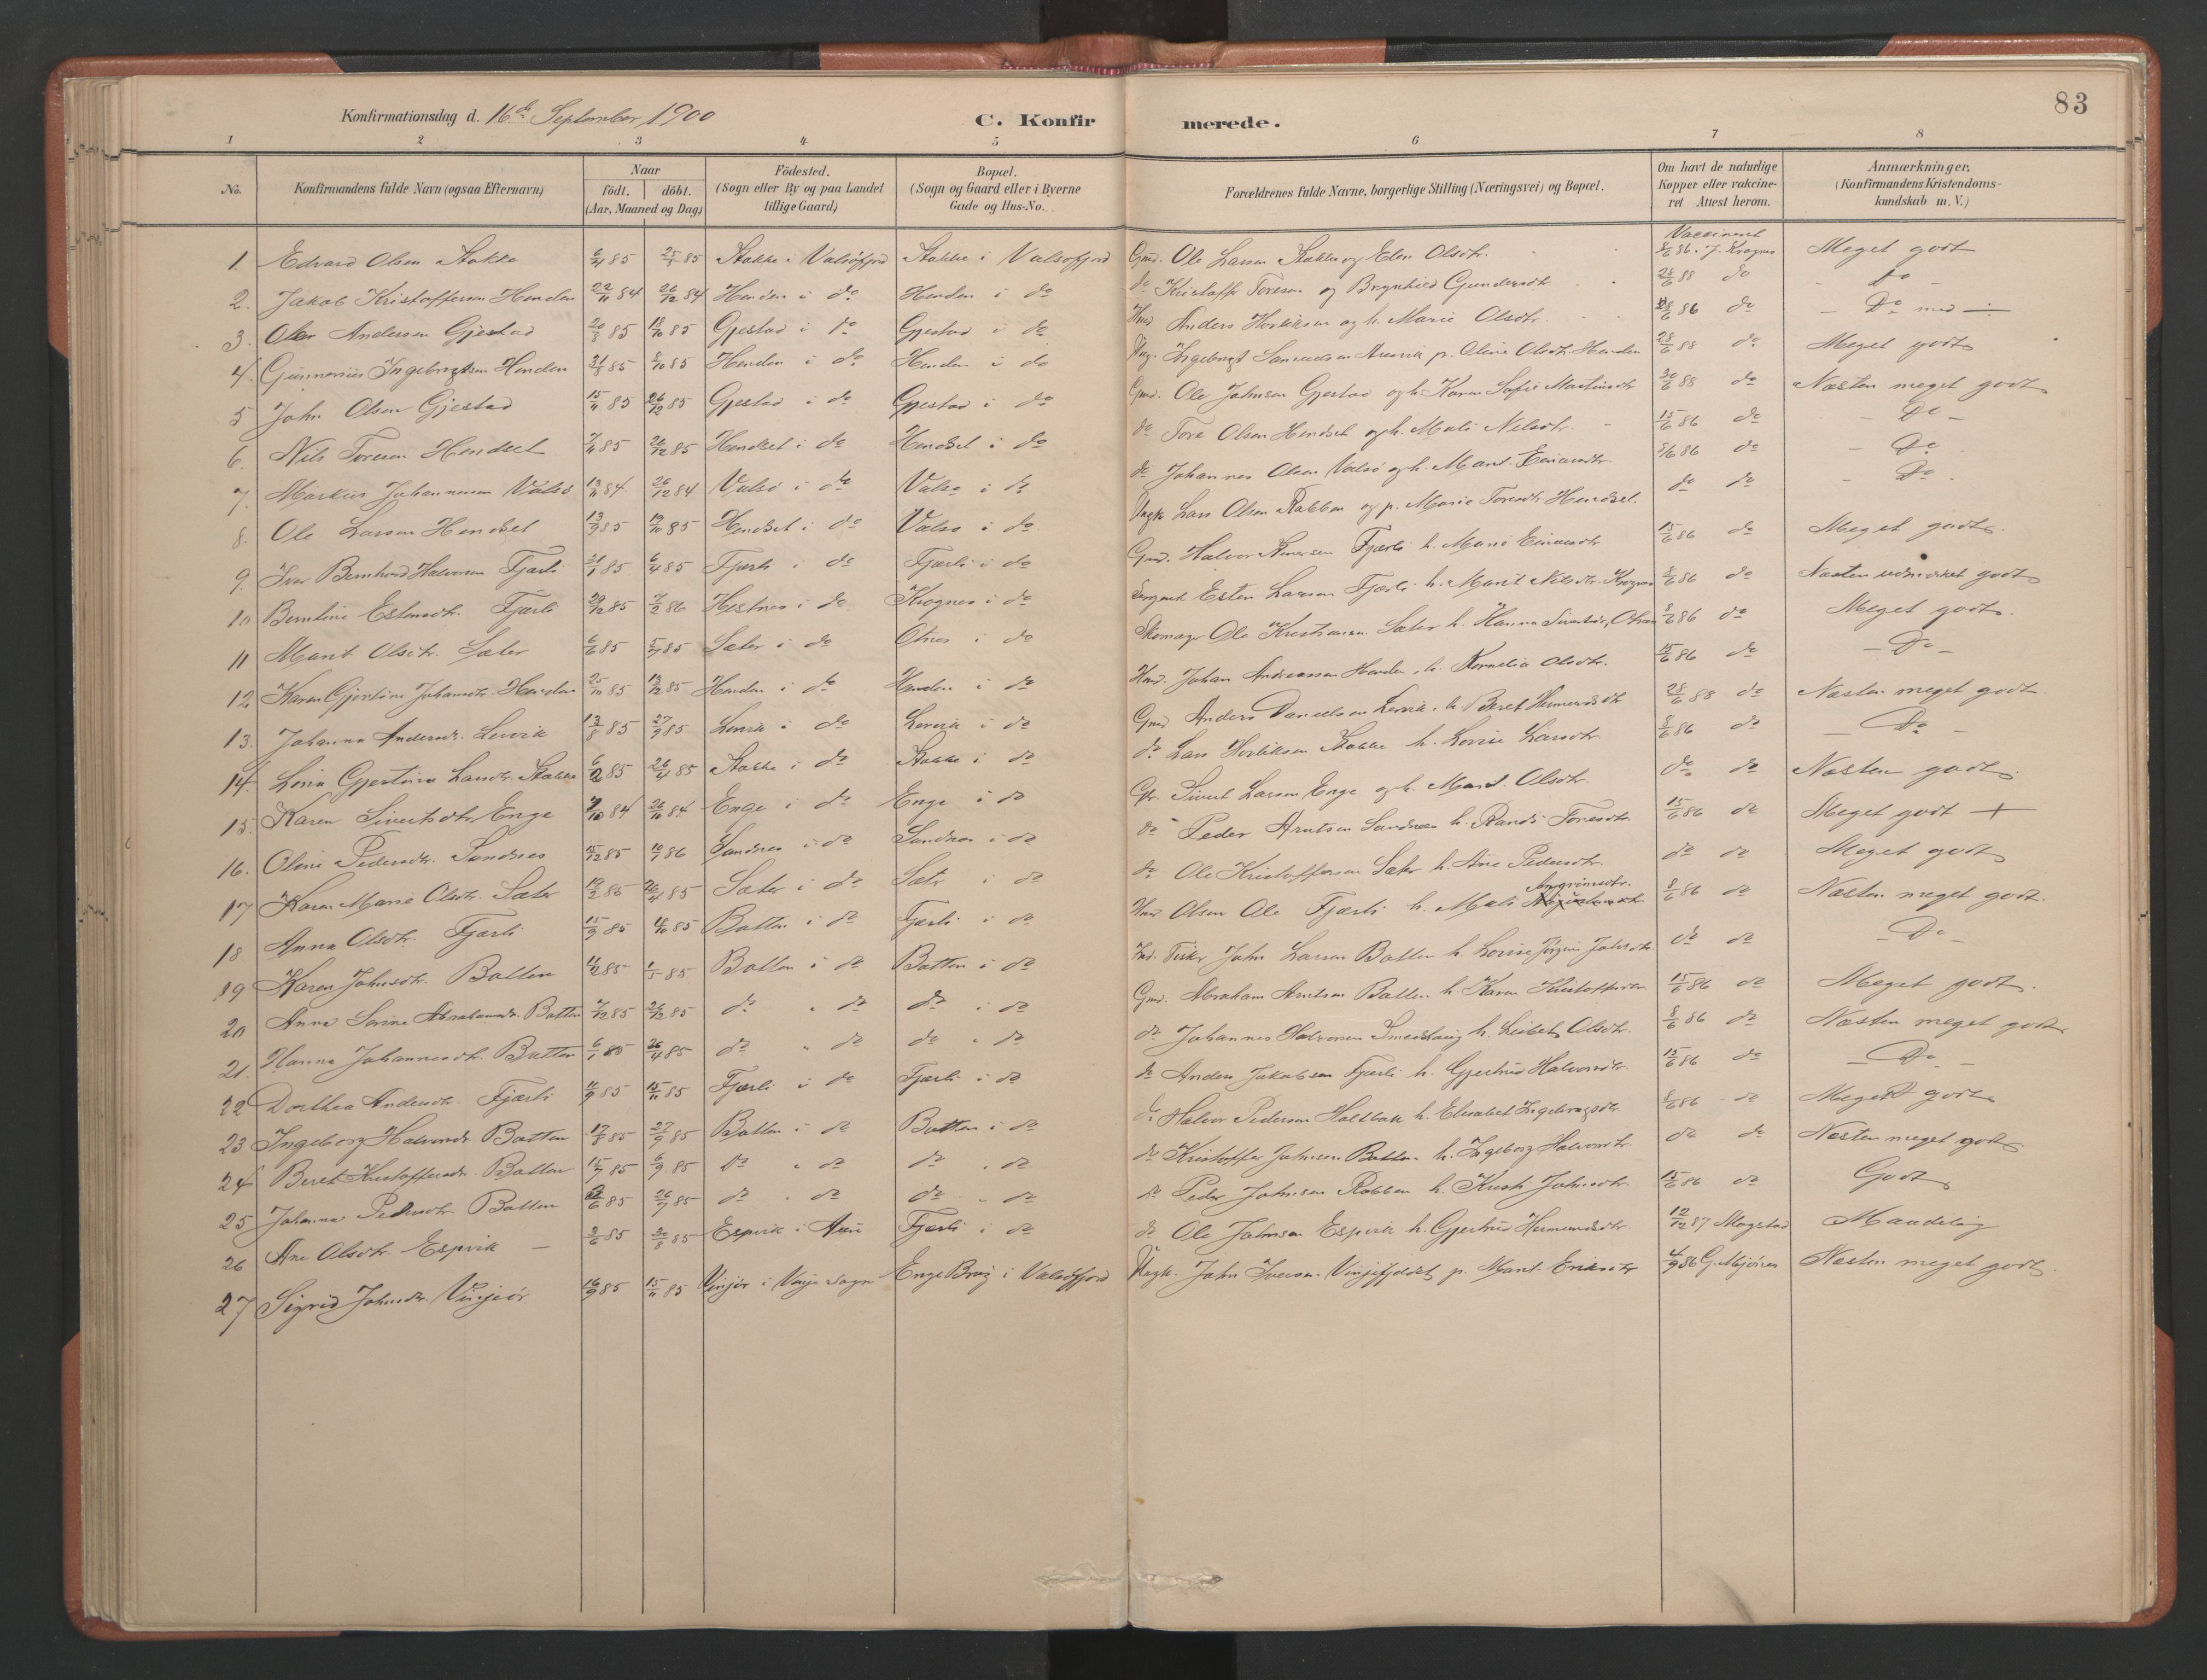 83
Konfirmationsdag d. 16de September 1900 C. Konfirmerede.
1 2 3 4 5 6 7 8
No. Konfirmandens fulde Navn (ogsaa Efternavn) Naar födt. döbt. (Aar, Maaned og Dag) Födested. (Sogn eller By og paa Landet tillige Gaard) Bopæl. (Sogn og Gaard eller i Byerne Gade og Hus-No. Forældrenes fulde Navne, borgerlige Stilling (Næringsvei) og Bopæl. Om havt de naturlige Kopper eller vakcineret Attest herom. Anmærkninger, (Konfirmandens Kristendomskundskab m. V.)
1. Edvard Olsen Stokke 6/4 85 25/5 85 Stokke i Valsöfjord Stokke i Valsofjord Gmd. Ole Larsen Stokke og Elen Olsdtr. Vaccineret 8/6 86. J. Krognes Meget godt
2. Jakob Kristoffersen Henden 22/11 84 26/12 84 Henden i do Henden i do do Kristoffer Toresen og Brynhild Gundersdtr 28/6 88 do Do
3. Andersen Gjestad 20/8 85 18/10 85 Gjestad i do Gjestad i do Anders og h. Marie Olsdtr. 86 do Do med —
4. Ingebrigtsen Henden 85 85 Henden i do Henden i do Ingebrigt p. Oline Olsdtr. Henden 28/6 88 do Meget godt
5 John Olsen Gjestad 15/11 85 26/12 85 Gjestad i do Gjestad i do Gmd. Ole Johnsen Gjestad og h. Karen Sofie Martinsdtr 30/6 88 do Næsten meget godt
6. Nils Toresen Hendset 7/11 85 26/12 85 Hendset i do Hendset i do do Tore Olsen Hendset og h. Mali Nilsdtr. 15/6 86 do Do
7. Markus Johannesen Valsö 13/11 84 26/12 84 Valsö i do Valsö i do do Johannes Olsen Valsö og h. Marit 8/6 86 do Do
8. Ole Larsen Hendset 13/9 85 19/10 85 Hendset i do Valsö i do Ungk. Lars Olsen Rabben og p. Marie Toresdtr. Hendset. do do Do
9. Ivar Bernhard Halvorsen Fjærli 21/1 85 6/4 85 Fjærli i do Fjærli i do Gmd. Halvor Fjærli h. Marie 15/6 86 do Meget godt.
10 Berntine Estensdtr. Fjærli 29/12 85 7/2 86 Hestnes i do Krognes i do Sergeant Esten Larsen Fjærli h. Marit Nilsdtr. Krognes 8/6 86 do Næsten udmærket godt
11 Marit Olsdtr. Sæter 6/6 85 5/7 85 Sæter i do Otnes i do Skomager Ole Kristiansen Sæter h. Hanna Sivertsdtr., Otnes 8/6 86 do Meget godt.
12 Karen Gjertine Johansdtr. Henden 25/10 85 13/12 85 Henden i do Henden i do Hmd. Johan Andreassen Henden, h. Kornelia Olsdtr. 15/6 86 do Do
13. Johanna Andersdtr. Lervik 13/8 85 27/9 85 Lervik i do Lervik i do Gmd Anders Danielsen Lervik, h. Beret 28/6 88 do Næsten meget godt.
14. Lina Gjertina Larsdtr. Stokke 6/2 85 26/4 85 Stokke i do Stokke i do do Lars Stokke h. Lovise Larsdtr. 8/6 86 do Do
15. Karen Sivertsdtr. Enge 7/10 84 26/10 84 Enge i do Enge i do Sivert Larsen Enge og h. Marit Olsdtr. do do Næsten godt.
16. Oline Pedersdtr. Sandnes 15/12 85 10/1 86 Sandnes i do Sandnes i do do Peder Arntsen Sandnes h. Randi Toresdtr. 15/6 86 do Meget godt +
17 Karen Marie Olsdtr. Sæter 19/2 85 26/4 85 Sæter i do Sæter i do do Ole Kristoffersen Sæter h. Ane Pedersdtr. do do Meget godt
18 Anna Olsdtr. Fjærli 15/9 85 18/10 85 Botten i do Fjærli i do Olsen Ole Fjærli h. Mali Arngrimsdtr. 8/6 86 do Næsten meget godt.
19 Karen Johnsdtr. Botten 85 1/5 85 Botten i do Botten i do Fisker John Larsen Botten h. Lovise Jörgine do do Do
20 Anna Serine Abrahamsdtr. Botten 7/12 85 26/12 85 do " do do i do Gmd. Abraham Arntsen Botten h. Karen Kristoffersdtr. 15/6 86 do Meget godt.
21. Hanna Johannesdtr. Botten 6/1 85 26/4 85 do " do do " do do Johannes Halvorsen h. Lisbet Olsdtr. 8/6 86 do Næsten meget godt
22 Dorthea Andersdtr. Fjærli 11/9 85 15/11 85 Fjærli i do Fjærli i do do Anders Jakobsen Fjærli h. Gjertrud Halvorsdtr. 15/6 86 do Do
23 Ingeborg Halvorsdtr. Botten 17/8 85 27/9 85 Botten i do Botten i do do Halvor Pedersen Holtbak h. Elisabet Ingebrigtsdtr. 8/6 86 do Meget godt
24 Beret Kristoffersdtr. Botten 15/7 85 6/9 85 Do " do do " do do Kristoffer Johnsen Botten h. Ingeborg Halvorsdtr. do do Næsten meget godt
25 Johanna Pedersdtr. Botten 85 26/7 85 do " do do " do do Peder Johnsen Robben h. Kirsti Johnsdtr. 15/6 86 do Godt
26 Ane Olsdtr. Espvik — 2/6 85 30/8 85 Espvik i Aure Fjærli i do do Ole Johnsen Espvik h. Gjertrud 12/12 87 Magstad Maadelig
27 Sigrid Johnsdtr. Vinjeör 16/9 85 15/11 85 Vinjör i Vinje Sogn Enge Brug i Valsöfjord Ungk. John Iversen Vinjefjeldet p. Marit Eriksdtr 4/9 86 G. Næsten meget godt.